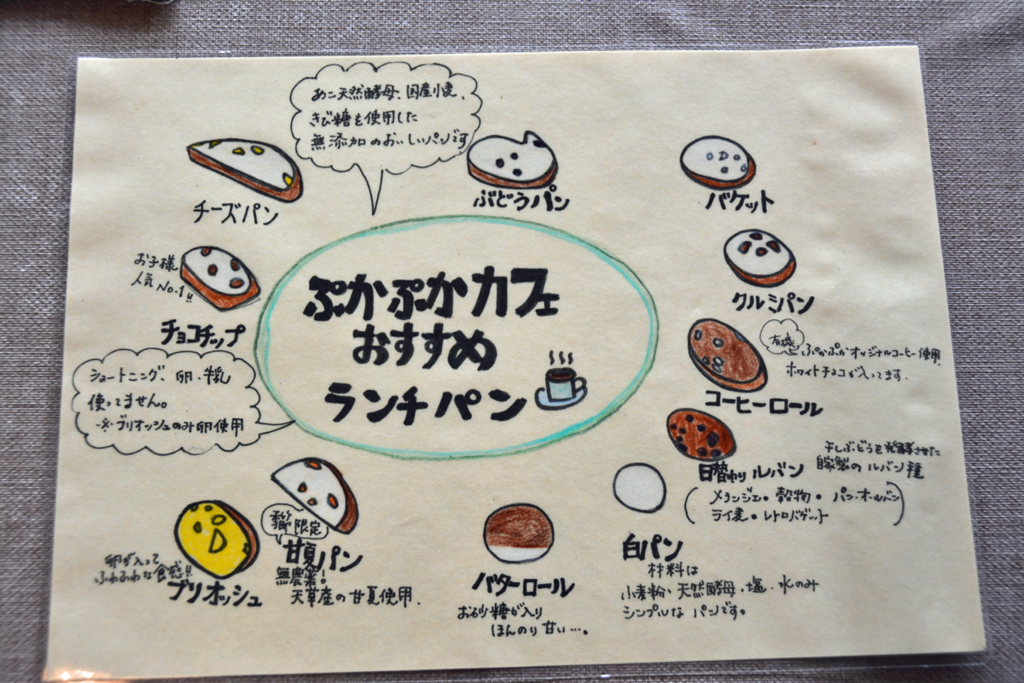 あこ天然酵母、国産小麦、
きび糖を使用した
無添加のおいしいパンです
チーズパン
ぶどうパン
バゲット
お子様
人気No.1!!
チョコチップ
ぷかぷかカフェ
おすすめ
ランチパン
クルミパン
有機
ぷかぷかオリジナルコーヒー使用
ホワイトチョコが入ってます.
コーヒーロール
ショートニング、卵、牛乳
使ってません。
※ブリオッシュのみ卵使用
干しぶどうを発酵させた
自家製のルバン種
日替わりルバン
(メランジェ・穀物・パン・オ・ルバン
ライ麦・レトロバゲット)
限定
甘夏パン
無農薬!
天草産の甘夏使用.
卵が入って
ふわふわな食感!!
ブリオッシュ
バターロール
お砂糖が入り
ほんのり甘い…。
白パン
材料は
小麦粉・天然酵母・塩・水のみ
シンプルなパンです。